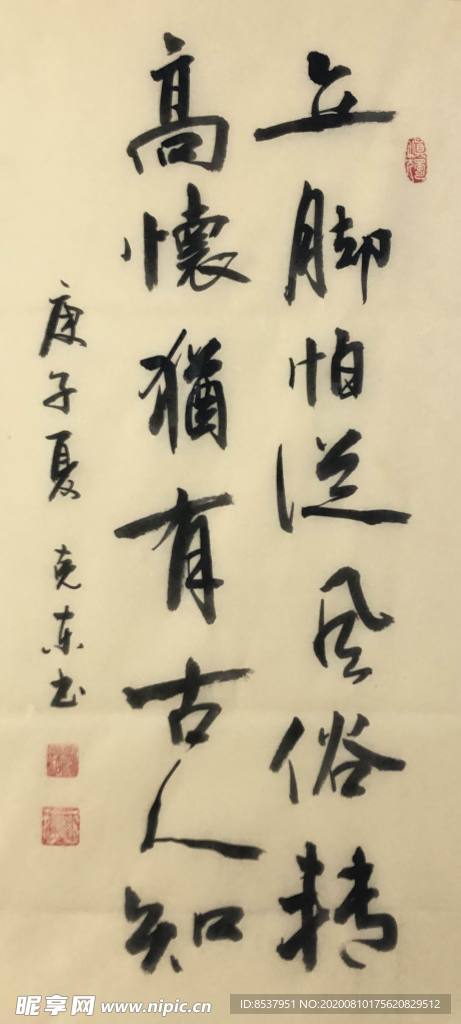 立脚怕從風俗轉
高懷猶有古人知
庚子夏 克东书
昵享网 www.nipic.cn
ID:8537951 NO:20200810175620829512